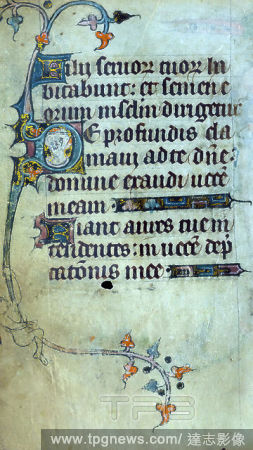 Filii seruor tuor ha
bitabunt: et semen e
orum in sclm dirigetur
De profundis cla
maui ad te dne:
domine exaudi uocē
meam
Fiant aures tue in
tendentes: in uocē dep
cationis mee
TPG
www.tpgnews.com/ 達志影像